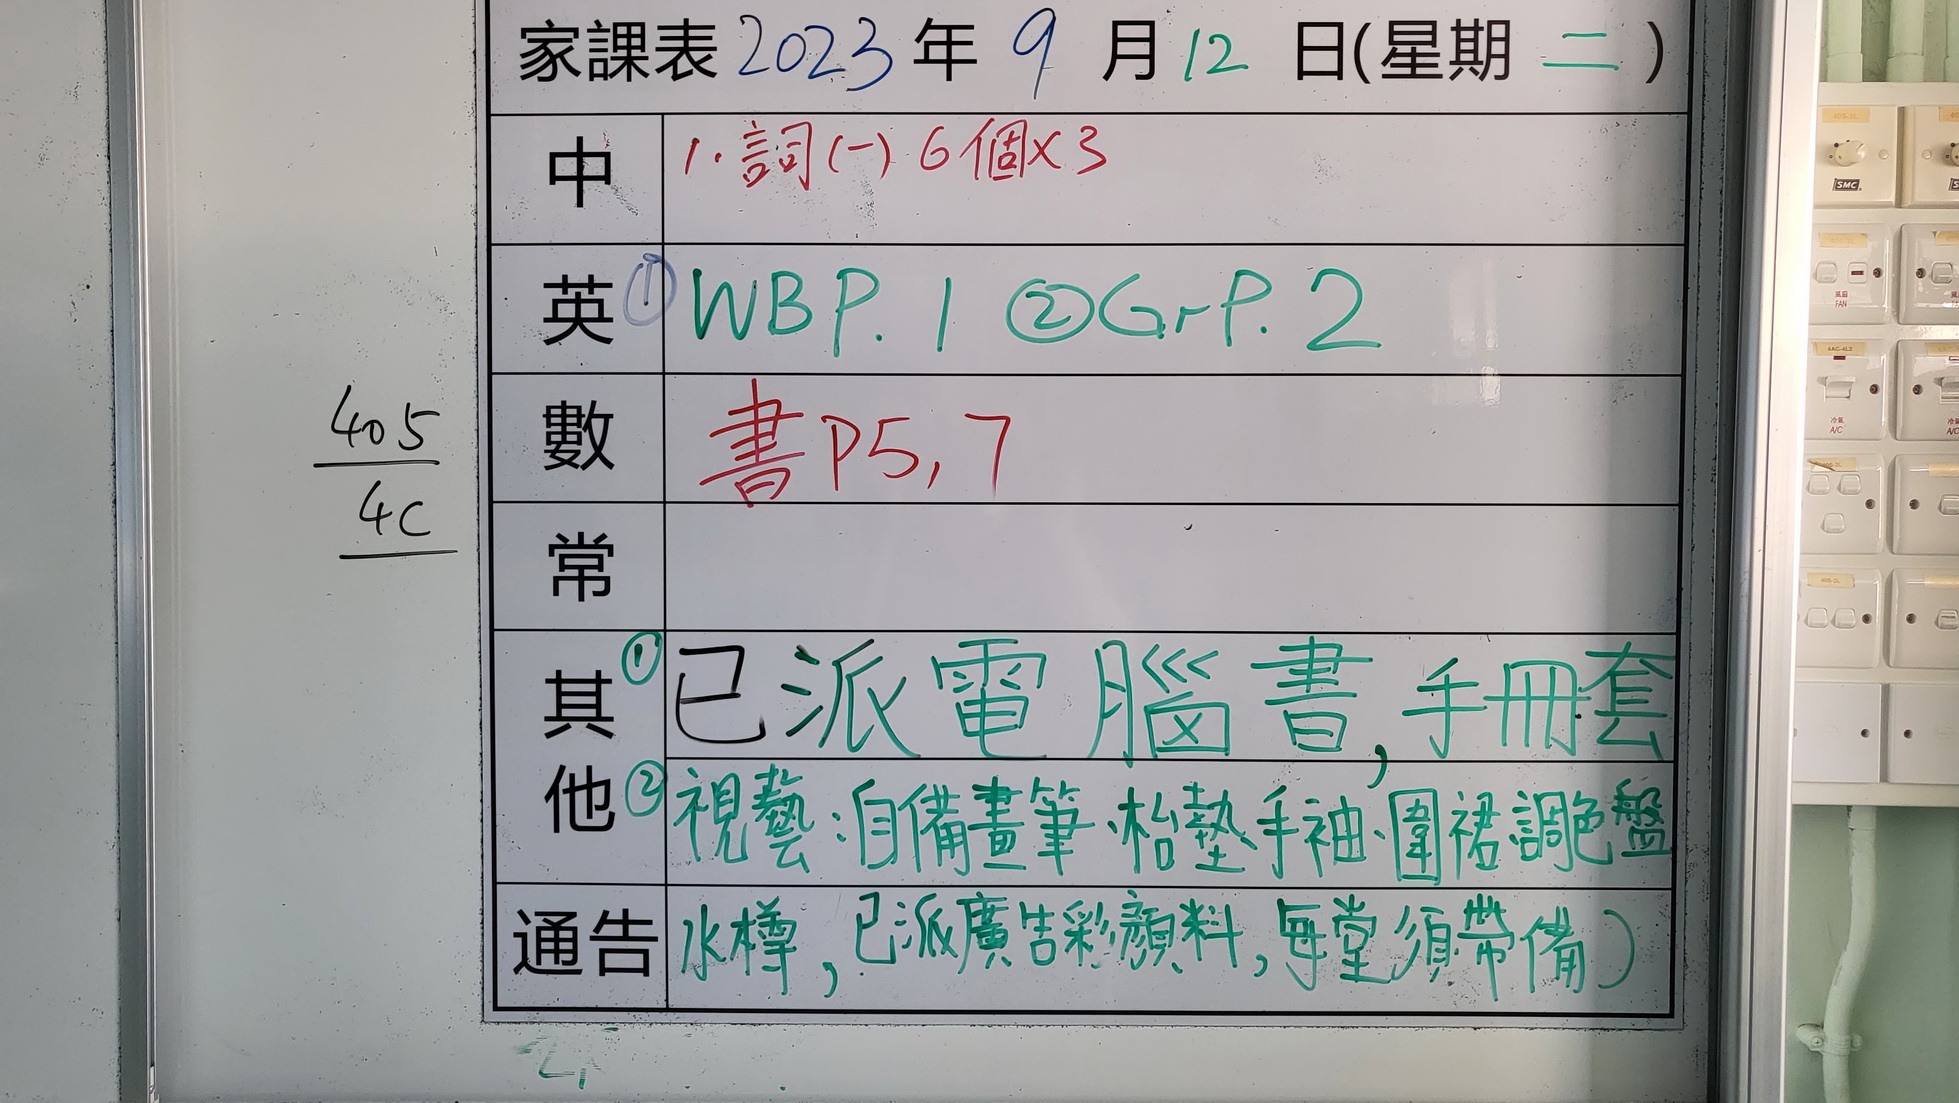 家課表 2023 年 9 月 12 日(星期 二 )
中 1.詞(一) 6個x3
英 ① WB P. 1 ② Gr P. 2
數 書 P5, 7
405
4C
常
其他 ① 已派電腦書,手冊套
② 視藝:自備畫筆.枱墊手袖.圍裙調色盤
通告 水樽,已派廣告彩顏料,每堂須帶備)
SMC
風扇
FAN
冷氣
A/C